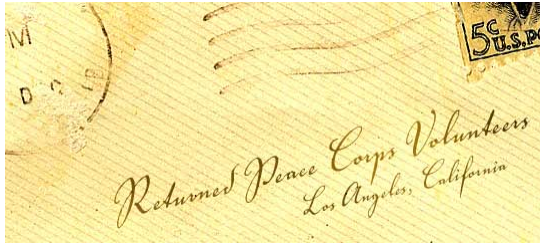 M
D C
5c
U.S.PO
Returned Peace Corps Volunteers
Los Angeles, California